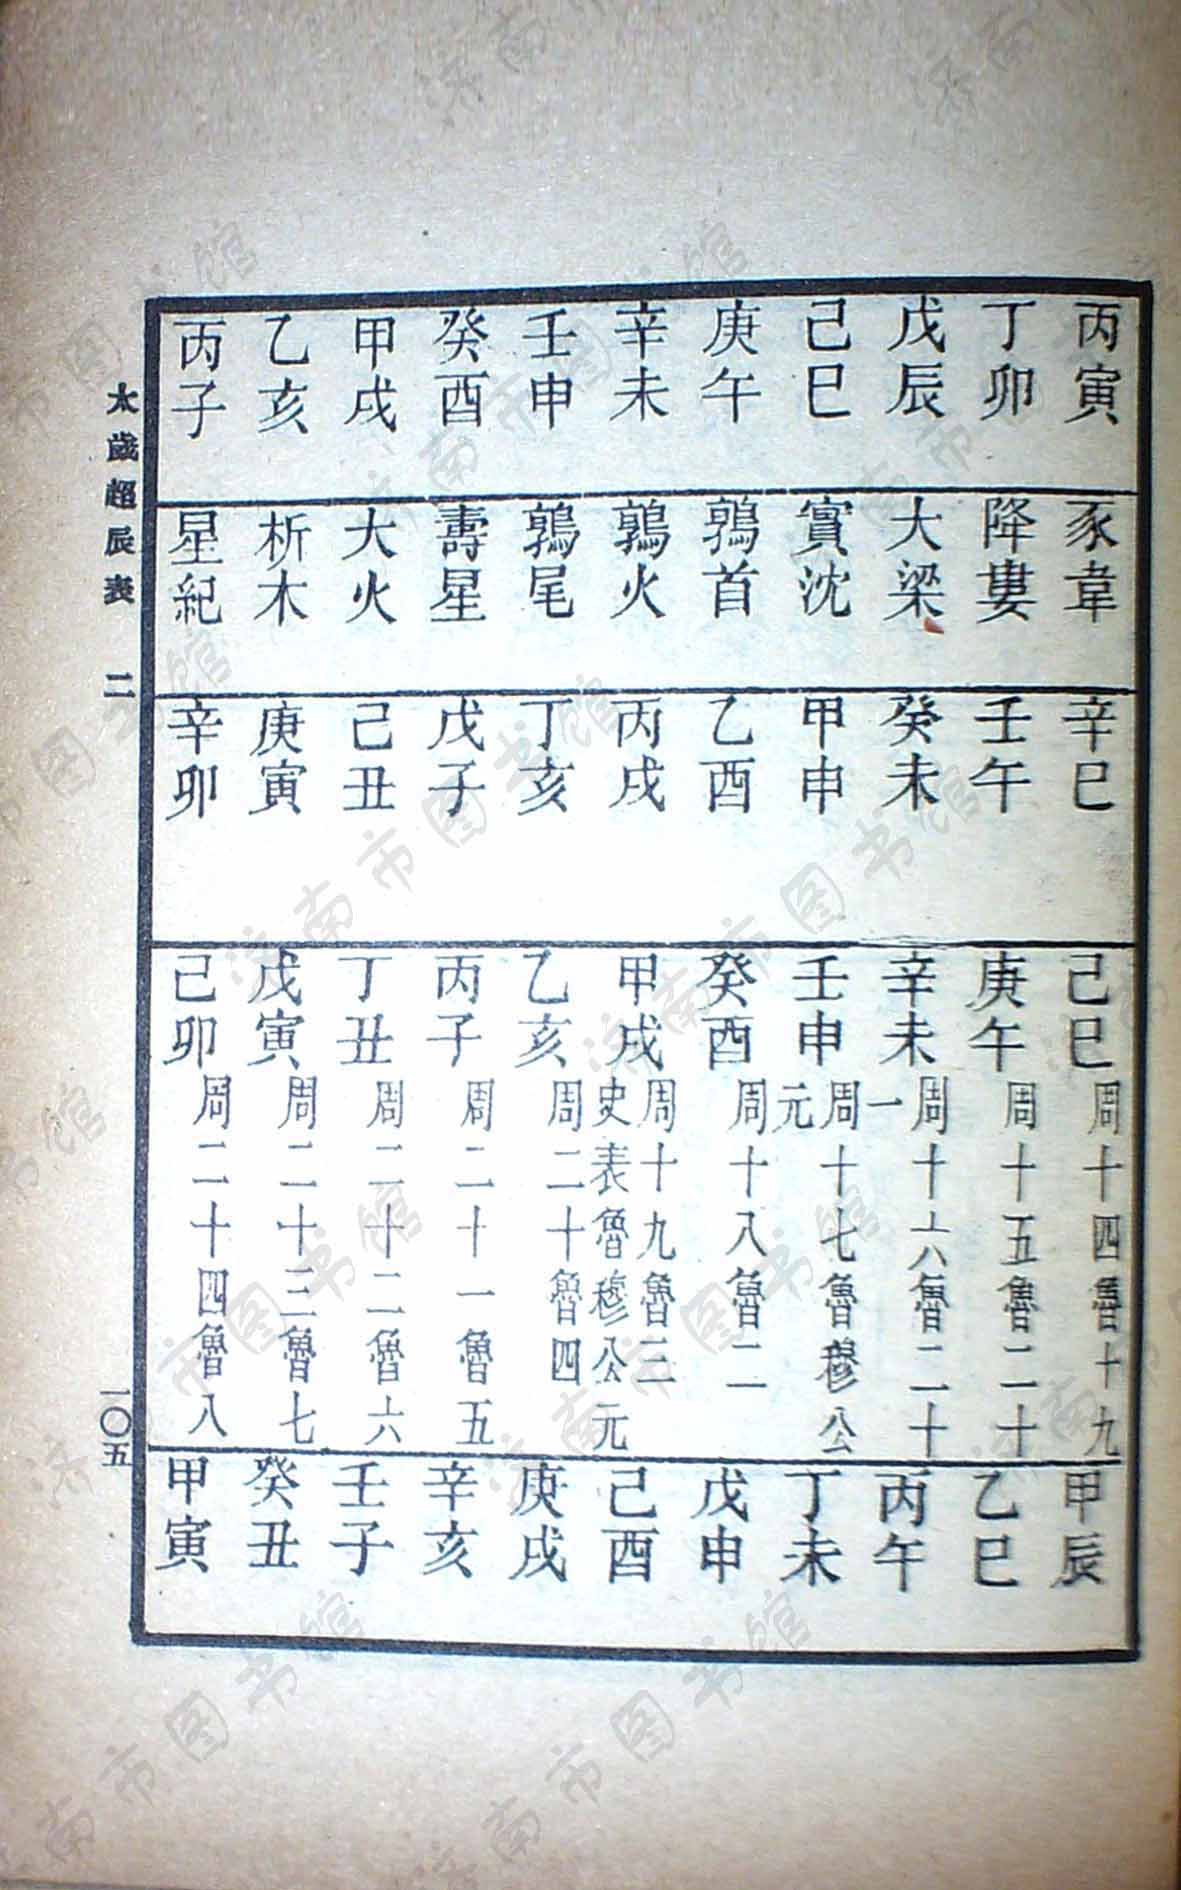 丙寅 豕韋 辛巳 己巳 周十四魯十九 甲辰
丁卯 降婁 壬午 庚午 周十五魯二十 乙巳
戊辰 大梁 癸未 辛未 周十六魯二十一 丙午
己巳 實沈 甲申 壬申 周十七魯穆公元 丁未
庚午 鶉首 乙酉 癸酉 周十八魯二 戊申
辛未 鶉火 丙戌 甲戌 周十九魯三史表魯穆公元 己酉
壬申 鶉尾 丁亥 乙亥 周二十魯四 庚戌
癸酉 壽星 戊子 丙子 周二十一魯五 辛亥
甲戌 大火 己丑 丁丑 周二十二魯六 壬子
乙亥 析木 庚寅 戊寅 周二十三魯七 癸丑
丙子 星紀 辛卯 己卯 周二十四魯八 甲寅
太歲超辰表 二 一〇五
济南市图书馆